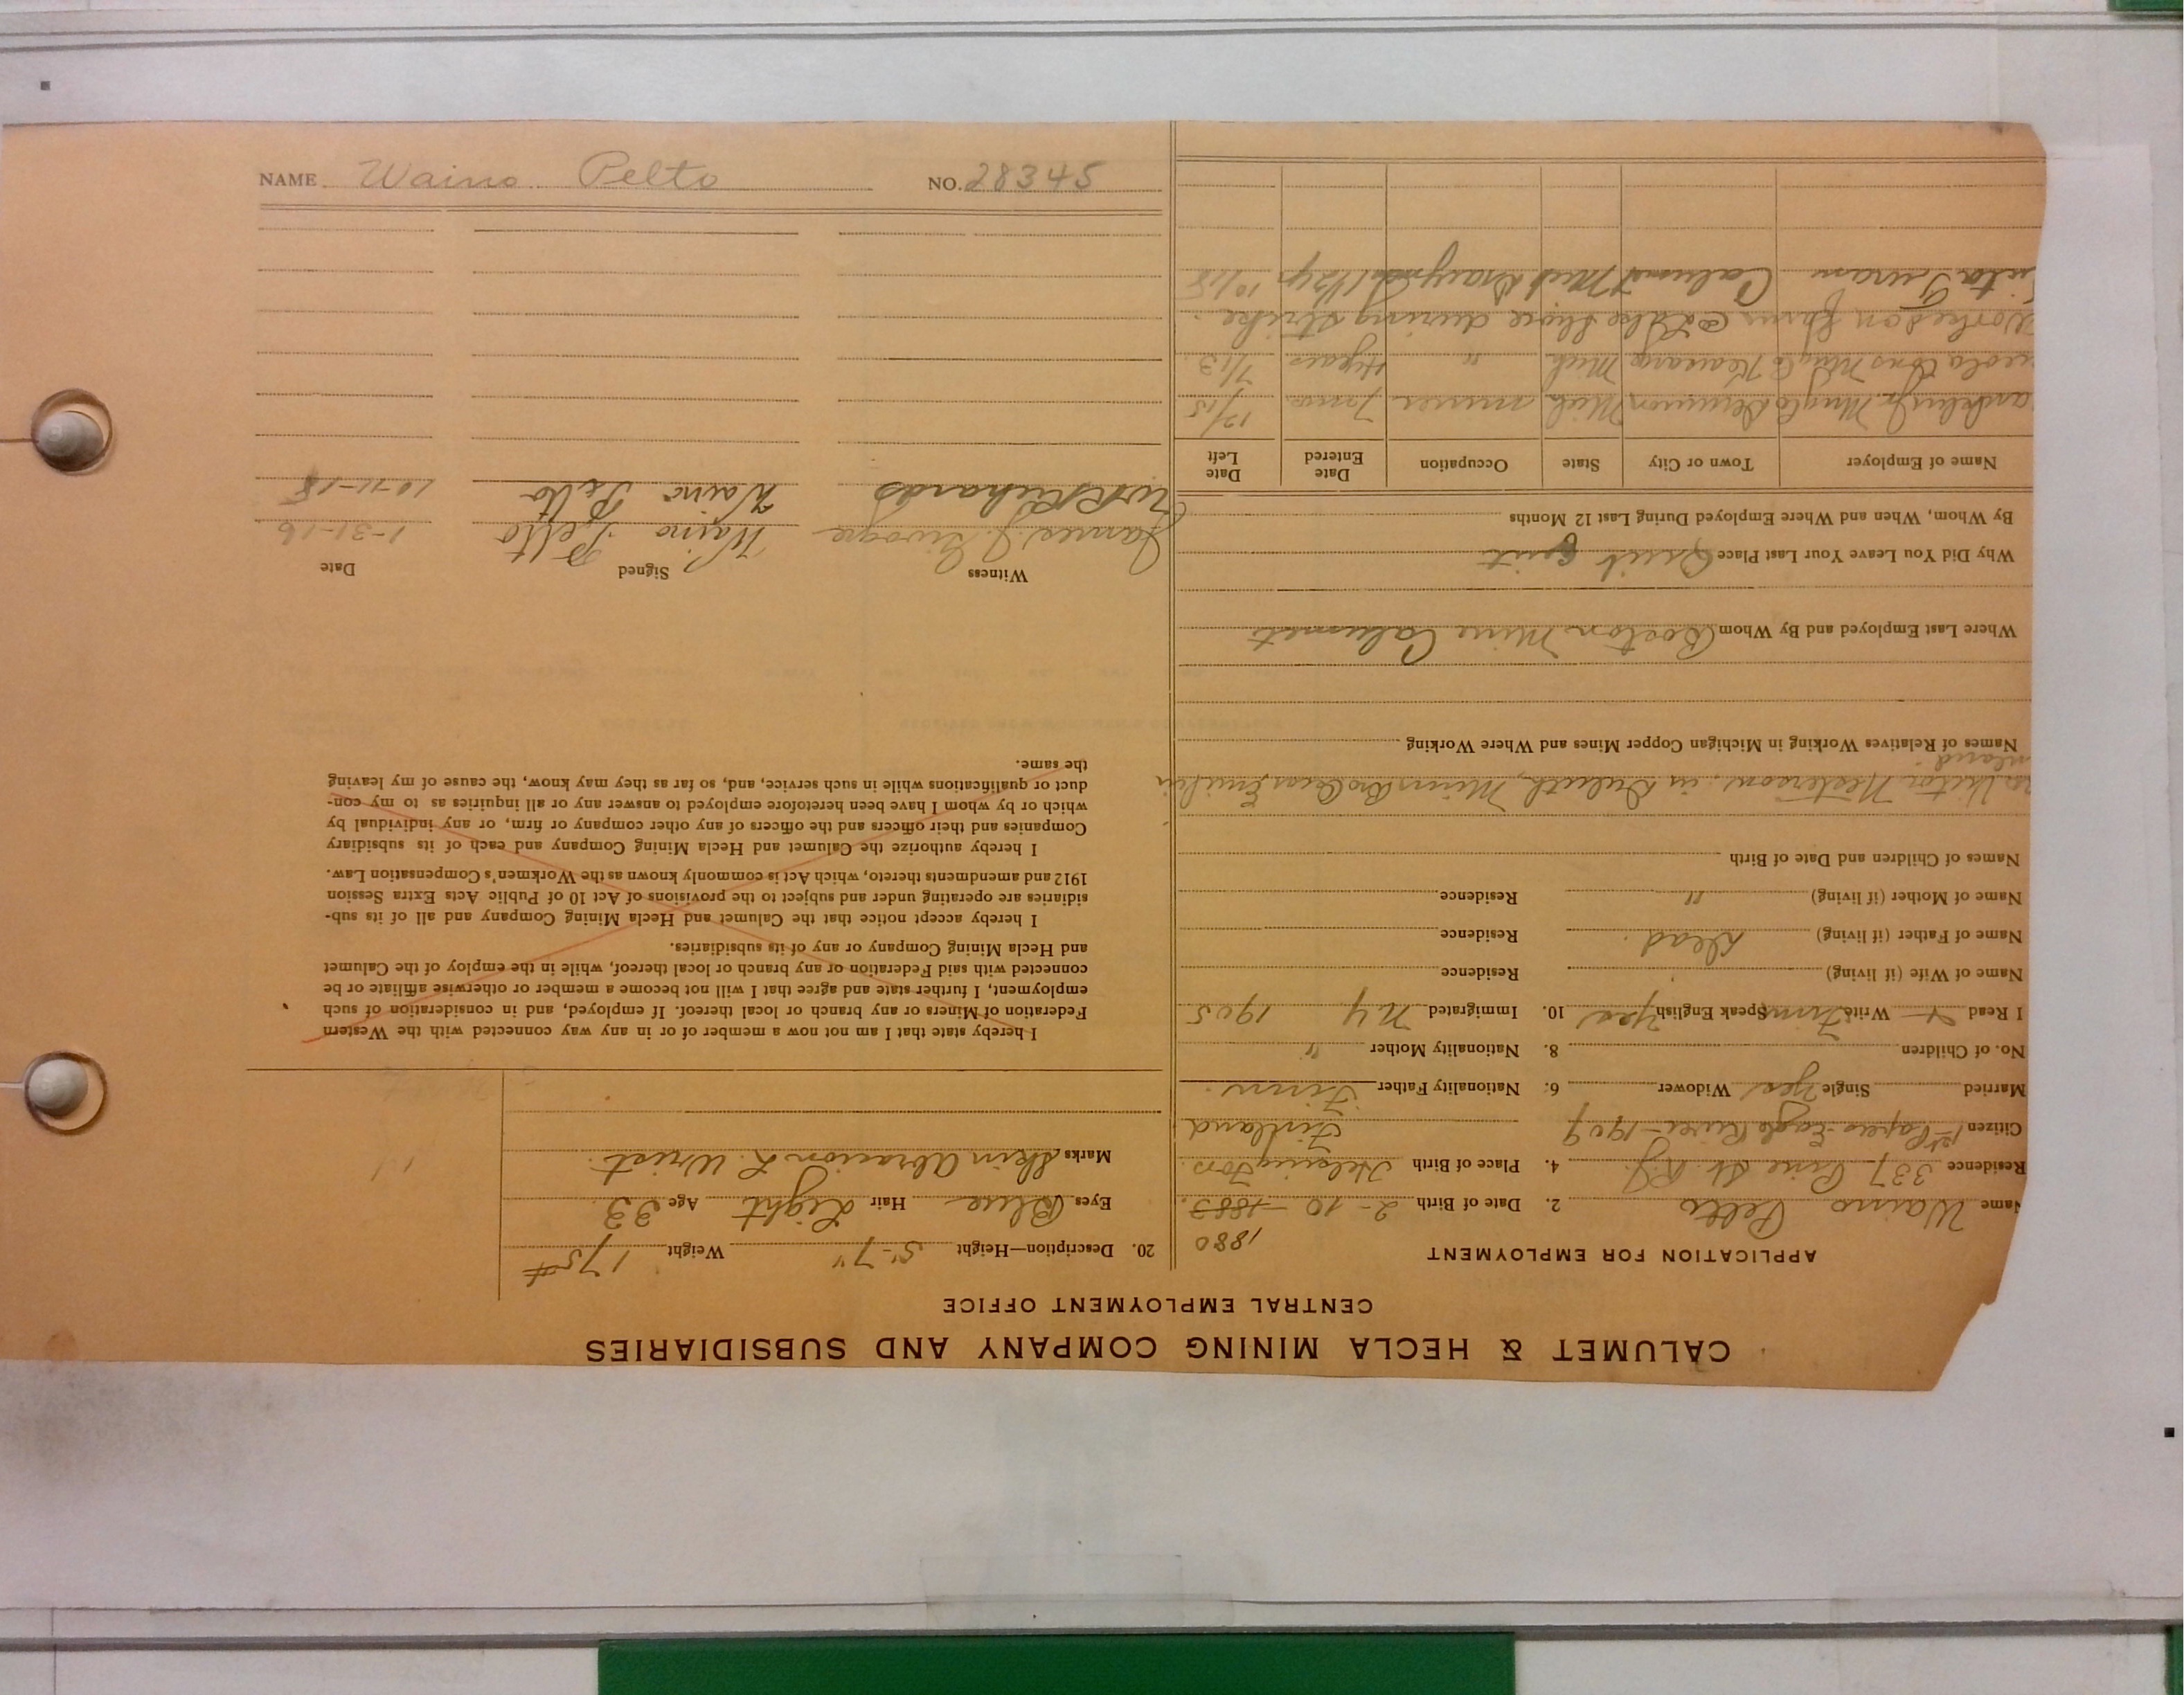 CALUMET & HECLA MINING COMPANY AND SUBSIDIARIES
CENTRAL EMPLOYMENT OFFICE
APPLICATION FOR EMPLOYMENT
1880
Name Waino Pelto 2. Date of Birth 2-10-1883
Residence 337 Pine St. R.J. 4. Place of Birth Helsingfors
Citizen 1st Papers Eagle River-1909 Finland
Married Single Yes Widower 6. Nationality Father Finn
No. of Children 8. Nationality Mother "
I Read Write Finn Speak English Yes 10. Immigrated N.Y. 1905
Name of Wife (if living) Residence
Name of Father (if living) Dead Residence
Name of Mother (if living) " Residence
Names of Children and Date of Birth
Victor in Duluth, Minn
Names of Relatives Working in Michigan Copper Mines and Where Working
Where Last Employed and By Whom Boston Mine Calumet
Why Did You Leave Your Last Place Quit Quit
By Whom, When and Where Employed During Last 12 Months
Name of Employer Town or City State Occupation Date Entered Date Left
Mng Co Mich miner 7 mos 12/15
Cons Mng Co Mich " 4 years 7/13
Worked on farm during strike
Calumet Mich 10/18
20. Description—Height 5'-7" Weight 175#
Eyes Blue Hair Light Age 33
Marks Skin abrasion L. Wrist.
I hereby state that I am not now a member of or in any way connected with the Western
Federation of Miners or any branch or local thereof. If employed, and in consideration of such
employment, I further state and agree that I will not become a member or otherwise affiliate or be
connected with said Federation or any branch or local thereof, while in the employ of the Calumet
and Hecla Mining Company or any of its subsidiaries.
I hereby accept notice that the Calumet and Hecla Mining Company and all of its sub-
sidiaries are operating under and subject to the provisions of Act 10 of Public Acts Extra Session
1912 and amendments thereto, which Act is commonly known as the Workmen's Compensation Law.
I hereby authorize the Calumet and Hecla Mining Company and each of its subsidiary
Companies and their officers and the officers of any other company or firm, or any individual by
which or by whom I have been heretofore employed to answer any or all inquiries as to my con-
duct or qualifications while in such service, and, so far as they may know, the cause of my leaving
the same.
Witness Signed Date
James J. Waino Pelto 1-31-16
Richards Waino Pelto 10-11-18
NAME Waino Pelto NO. 28345